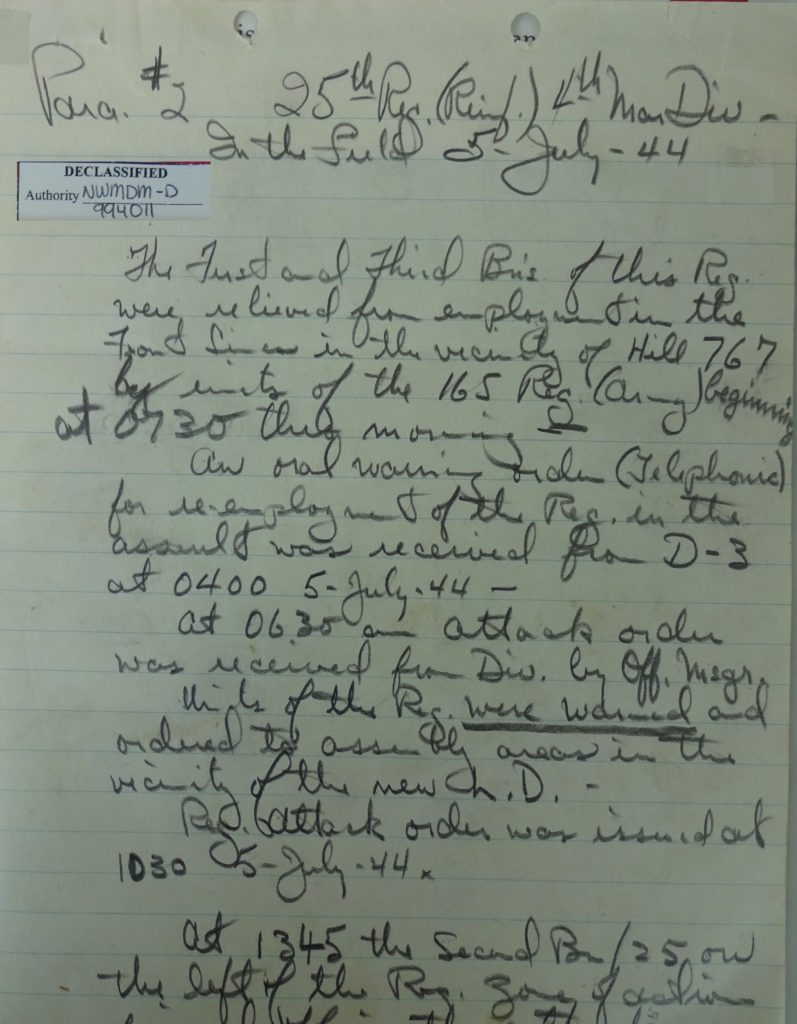 Para. #2 25th Reg. (Reinf.) 4th Mar Div -
In the Field 5-July-44
DECLASSIFIED
Authority NWMDM-D
994011
The First and Third Bn's of this Reg.
were relieved from employment in the
Front Lines in the vicinity of Hill 767
by units of the 165 Reg. (Army) beginning
at 0730 this morning
An oral warning order (Telephonic)
for re-employment of the Reg. in the
assault was received from D-3
at 0400 5-July-44 -
At 0630 an attack order
was received from Div. by Off. Msgr.
Units of the Reg. were warned and
ordered to assembly areas in the
vicinity of the new L.D. -
Reg. attack order was issued at
1030 5-July-44
At 1345 the Second Bn/25 on
the left of the Reg. Zone of action